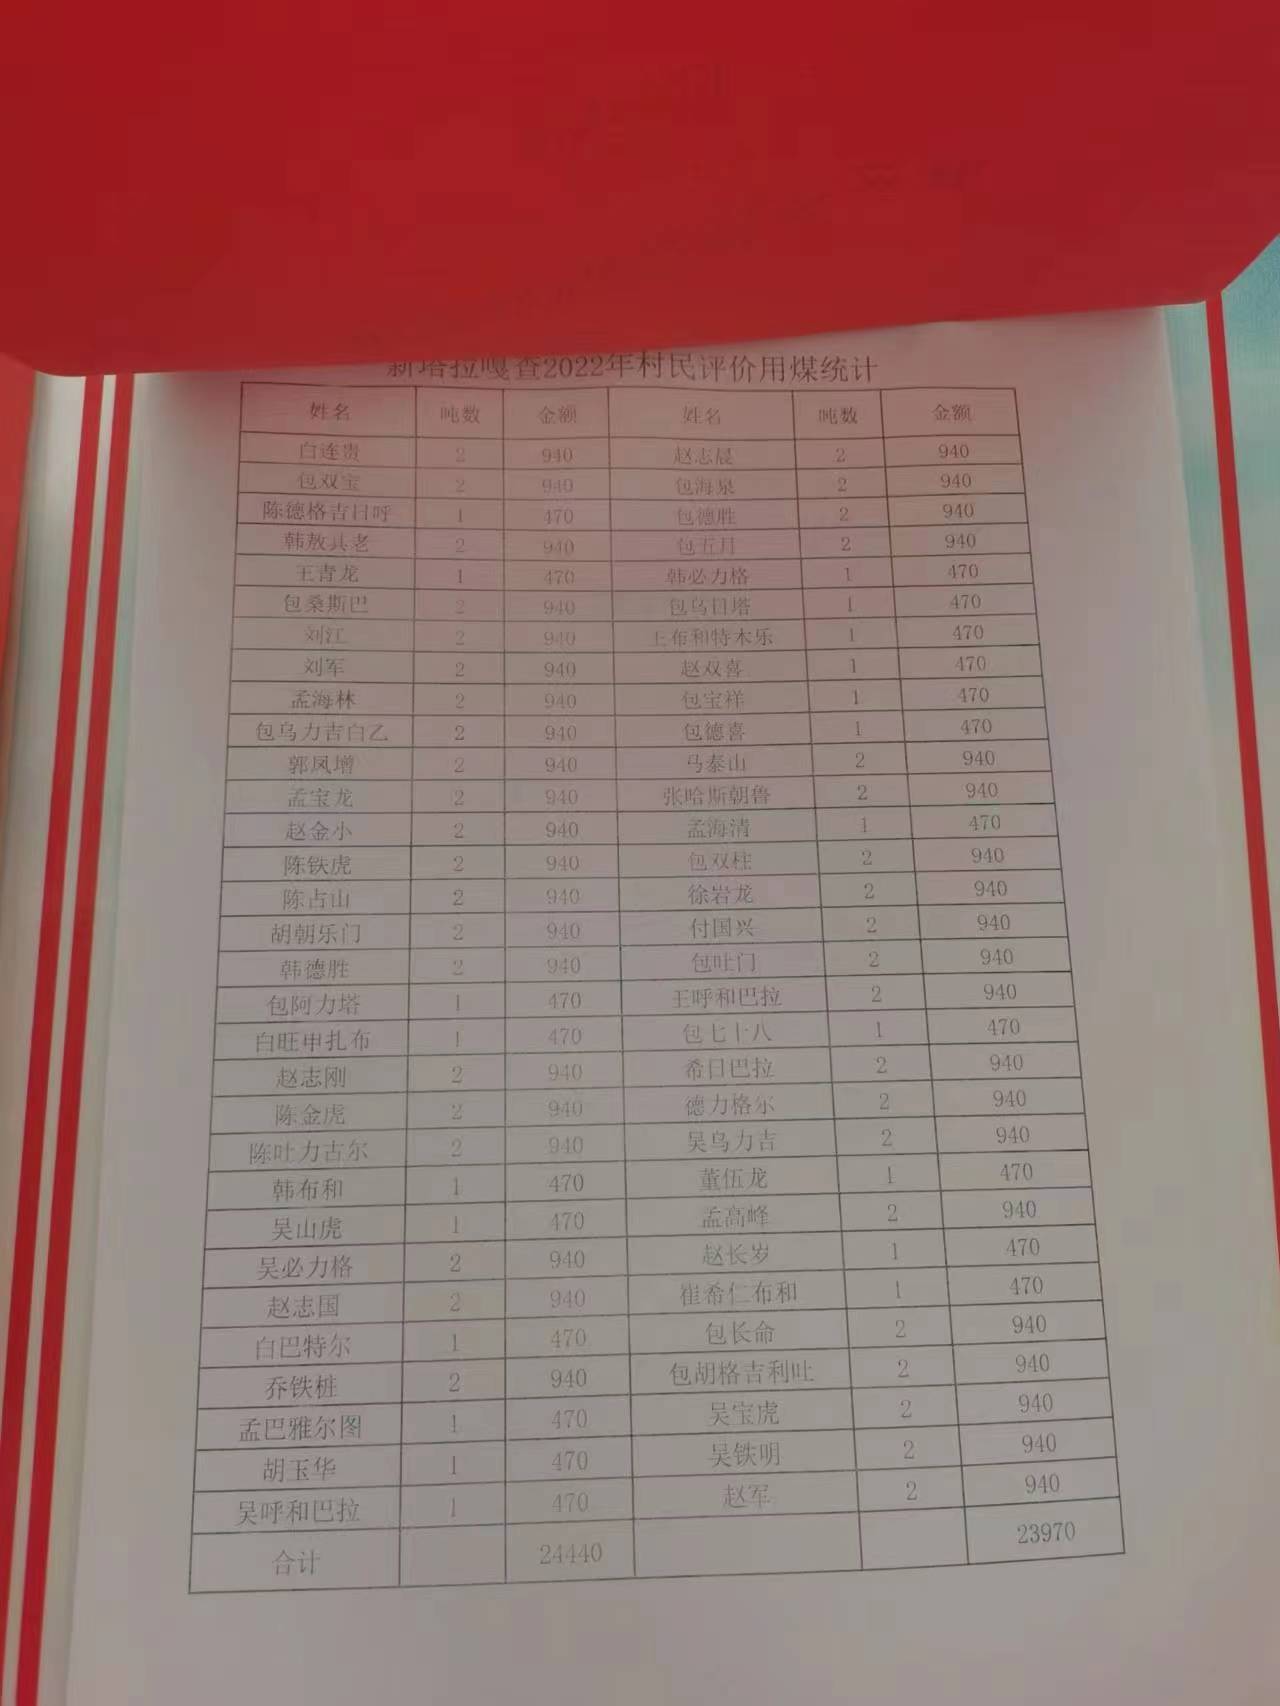 新塔拉嘎查2022年村民评价用煤统计
姓名 吨数 金额 姓名 吨数 金额
白连贵 2 940 赵志晨 2 940
包双宝 2 940 包海泉 2 940
陈德格吉日呼 1 470 包德胜 2 940
韩敖其老 2 940 包五月 2 940
王青龙 1 470 韩必力格 1 470
包桑斯巴 2 940 包乌日塔 1 470
刘江 2 940 王布和特木乐 1 470
刘军 2 940 赵双喜 1 470
孟海林 2 940 包宝祥 1 470
包乌力吉白乙 2 940 包德喜 1 470
郭凤增 2 940 马泰山 2 940
孟宝龙 2 940 张哈斯朝鲁 2 940
赵金小 2 940 孟海清 1 470
陈铁虎 2 940 包双柱 2 940
陈占山 2 940 徐岩龙 2 940
胡朝乐门 2 940 付国兴 2 940
韩德胜 2 940 包吐门 2 940
包阿力塔 1 470 王呼和巴拉 2 940
白旺申扎布 1 470 包七十八 1 470
赵志刚 2 940 希日巴拉 2 940
陈金虎 2 940 德力格尔 2 940
陈吐力古尔 2 940 吴乌力吉 2 940
韩布和 1 470 董伍龙 1 470
吴山虎 1 470 孟高峰 2 940
吴必力格 2 940 赵长岁 1 470
赵志国 2 940 崔希仁布和 1 470
白巴特尔 1 470 包长命 2 940
乔铁桩 2 940 包胡格吉利吐 2 940
孟巴雅尔图 1 470 吴宝虎 2 940
胡玉华 1 470 吴铁明 2 940
吴呼和巴拉 1 470 赵军 2 940
合计 24440 23970